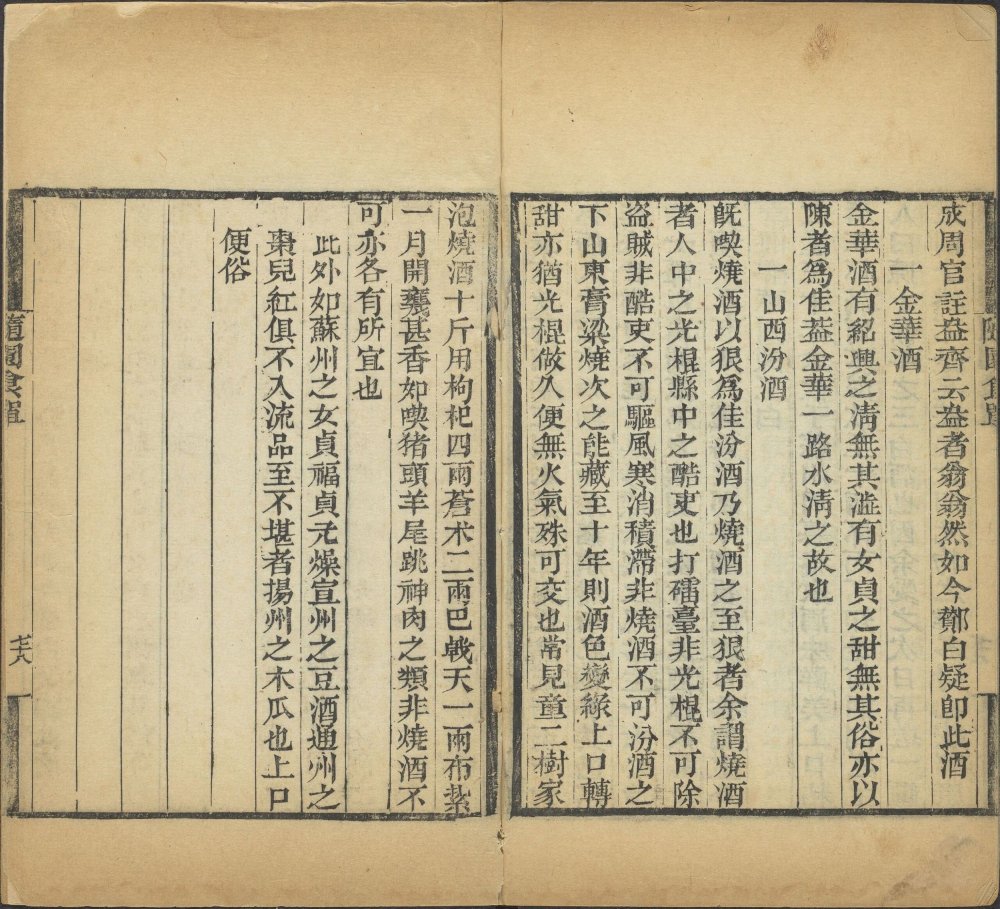 成周官註盎齊云盎者翁翁然如今酇白疑卽此酒
一金華酒
金華酒有紹興之淸無其澁有女貞之甜無其俗亦以
陳者爲佳葢金華一路水淸之故也
一山西汾酒
旣喫燒酒以狠爲佳汾酒乃燒酒之至狠者余謂燒酒
者人中之光棍縣中之酷吏也打礌臺非光棍不可除
盗賊非酷吏不可驅風寒消積滯非燒酒不可汾酒之
下山東膏粱燒次之能藏至十年則酒色變綠上口轉
甜亦猶光棍做久便無火氣殊可交也常見童二樹家
泡燒酒十斤用枸杞四兩蒼术二兩巴戟天一兩布紮
一月開甕甚香如喫猪頭羊尾跳神肉之類非燒酒不
可亦各有所宜也
此外如蘇州之女貞福貞元燥宣州之豆酒通州之
棗兒紅俱不入流品至不堪者揚州之木瓜也上口
便俗
隨園食單
七八